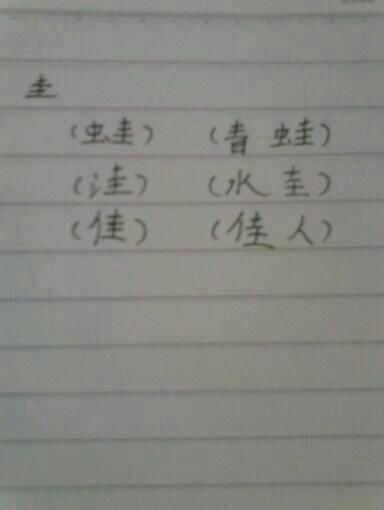 圭
(蛙) (青蛙)
(洼) (水圭)
(佳) (佳人)